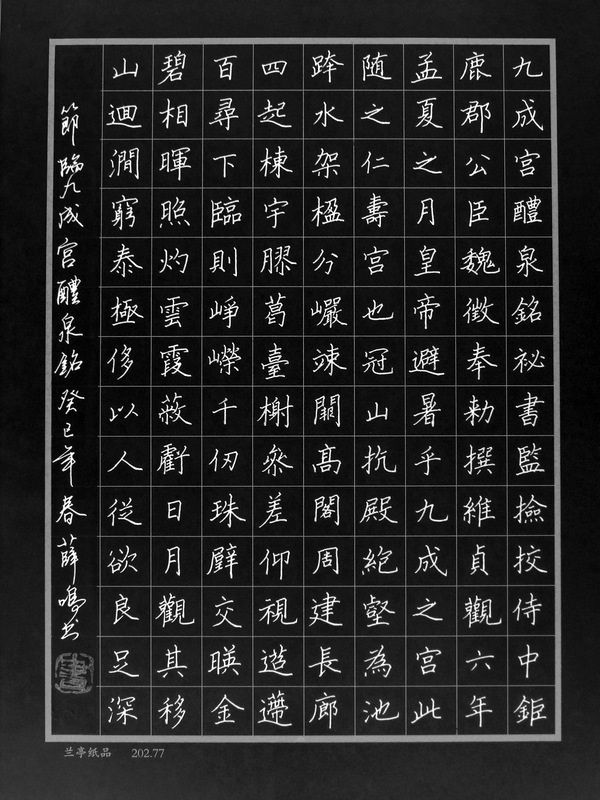 九成宮醴泉銘祕書監撿挍侍中鉅
鹿郡公臣魏徵奉勑撰維貞觀六年
孟夏之月皇帝避暑乎九成之宮此
随之仁壽宮也冠山抗殿絕壑為池
跨水架楹分巗竦闕高閣周建長廊
四起棟宇膠葛臺榭叅差仰視迢遰
百尋下臨則崢嶸千仞珠璧交暎金
碧相暉照灼雲霞蔽虧日月觀其移
山迴澗窮泰極侈以人從欲良足深
節臨九成宮醴泉銘癸巳年春薛鳴書
兰亭纸品 202.77